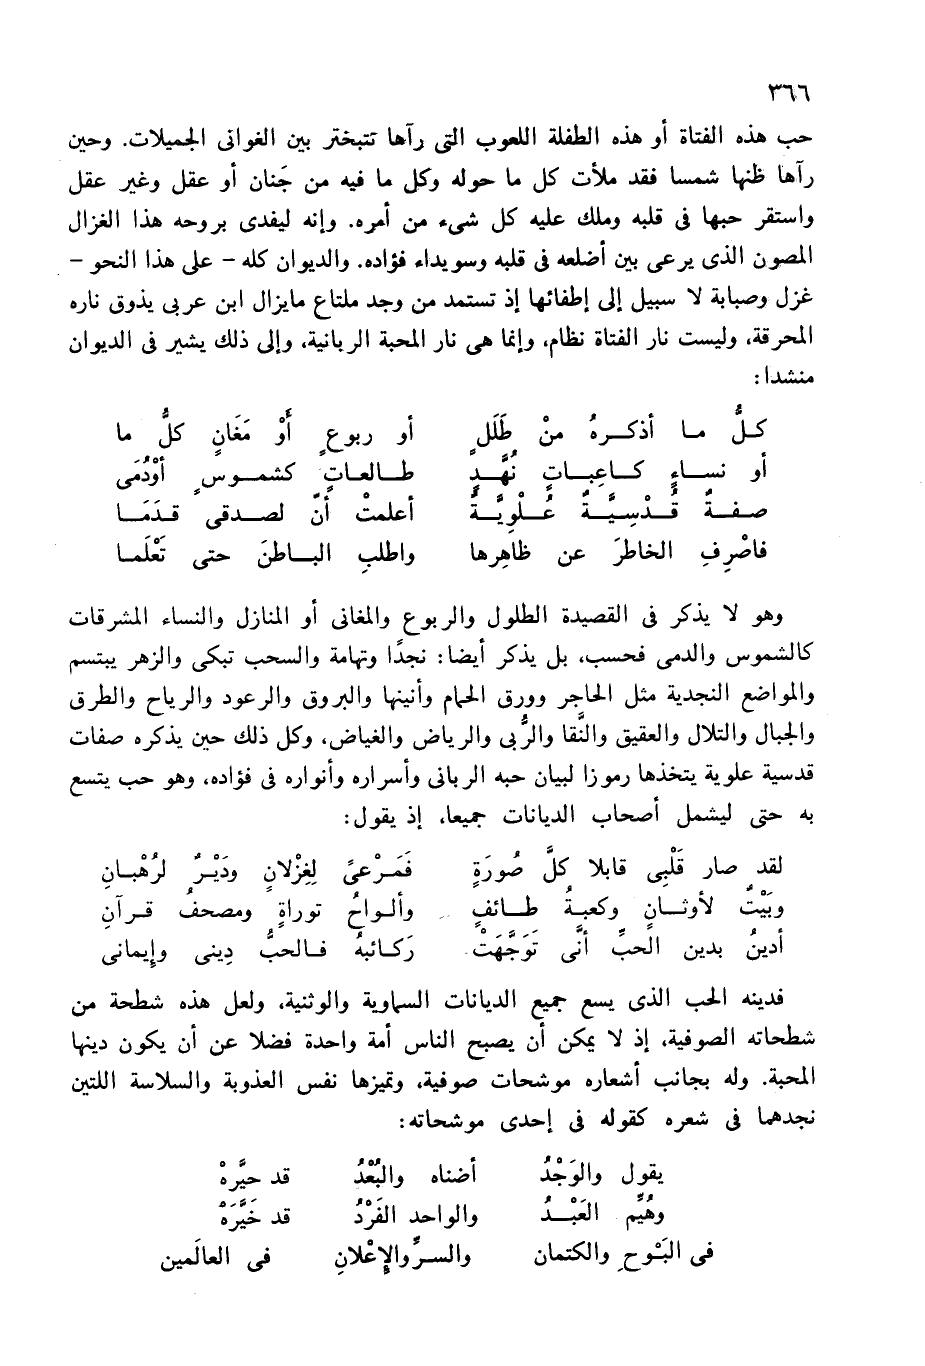 ٣٦٦
حب هذه الفتاة أو هذه الطفلة اللعوب التى رآها تتبختر بين الغوانى الجميلات. وحين
رآها ظنها شمسا فقد ملأت كل ما حوله وكل ما فيه من جَنان أو عقل وغير عقل
واستقر حبها فى قلبه وملك عليه كل شىء من أمره. وإنه ليفدى بروحه هذا الغزال
المصون الذى يرعى بين أضلعه فى قلبه وسويداء فؤاده. والديوان كله – على هذا النحو –
غزل وصبابة لا سبيل إلى إطفائها إذ تستمد من وجد ملتاع مايزال ابن عربى يذوق ناره
المحرقة، وليست نار الفتاة نظام، وإنما هى نار المحبة الربانية، وإلى ذلك يشير فى الديوان
منشدا:
كلُّ ما أذكرهُ منْ طَلَلٍ أو ربوعٍ أَوْ مَغَانٍ كلُّ ما
أو نساءٍ كاعِباتٍ نُهَّدٍ طالعاتٍ كشموسٍ أوْدُمَى
صفةٌ قُدْسِيَّةٌ عُلْوِيَّةٌ أعلمتْ أنّ لصدقى قدَمَا
فاصْرِفِ الخاطرَ عن ظاهِرها واطلبِ الباطنَ حتى تَعْلَما
وهو لا يذكر فى القصيدة الطلول والربوع والمغانى أو المنازل والنساء المشرقات
كالشموس والدمى فحسب، بل يذكر أيضا: نجدًا وتهامة والسحب تبكى والزهر يبتسم
والمواضع النجدية مثل الحاجر وورق الحمام وأنينها والبروق والرعود والرياح والطرق
والجبال والتلال والعقيق والنَّقا والرُّبى والرياض والغياض، وكل ذلك حين يذكره صفات
قدسية علوية يتخذها رموزا لبيان حبه الربانى وأسراره وأنواره فى فؤاده، وهو حب يتسع
به حتى ليشمل أصحاب الديانات جميعا، إذ يقول:
لقد صار قَلْبِى قابلا كلَّ صُورَةٍ فَمَرْعىً لِغِزْلانٍ ودَيْرٌ لرُهْبانِ
وبَيْتٌ لأوثانٍ وكعبةُ طائفٍ وألواحُ توراةٍ ومصحفُ قرآنِ
أدينُ بدين الحبِّ أنَّى تَوَجَّهَتْ رَكائبهُ فالحبُّ دِينى وإيمانى
فدينه الحب الذى يسع جميع الديانات السماوية والوثنية، ولعل هذه شطحة من
شطحاته الصوفية، إذ لا يمكن أن يصبح الناس أمة واحدة فضلا عن أن يكون دينها
المحبة. وله بجانب أشعاره موشحات صوفية، وتميزها نفس العذوبة والسلاسة اللتين
نجدهما فى شعره كقوله فى إحدى موشحاته:
يقول والوَجْدُ أضناه والبُعْدُ قد حيَّرهْ
وهُيِّم العَبْدُ والواحد الفَرْدُ قد خَيَّرَهْ
فى البَوْحِ والكتمان والسرِّ والإعْلانِ فى العالَمين